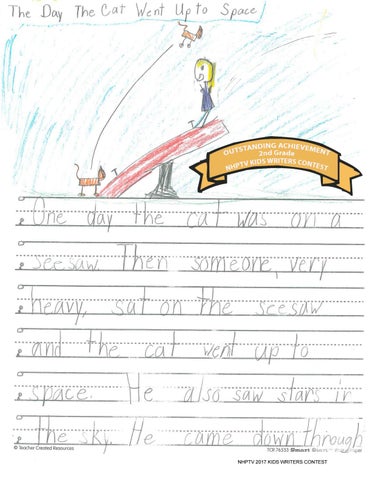 The Day The Cat Went Up to Space
OUTSTANDING ACHIEVEMENT
2nd Grade
NHPTV KIDS WRITERS CONTEST
One day the cat was on a
seesaw. Then someone, very
heavy, sat on the seesaw
and the cat went up to
space. He also saw stars in
the sky. He came down through
© Teacher Created Resources
TCR 76533
NHPTV 2017 KIDS WRITERS CONTEST